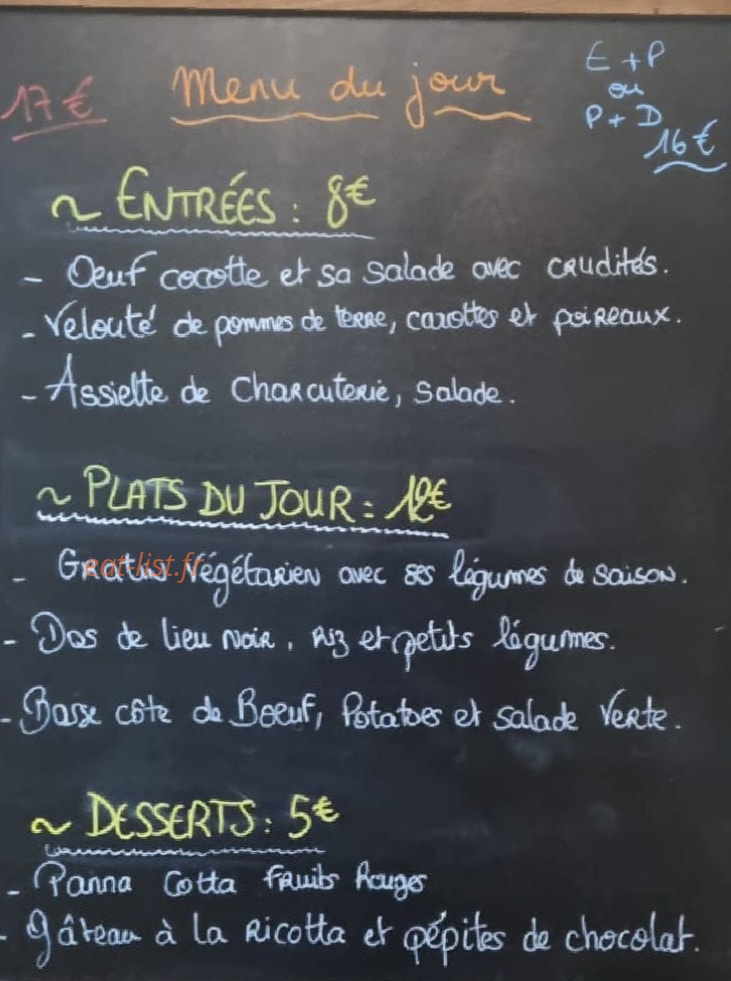 17€ Menu du jour
E + P
ou
P + D
16€
~ ENTRÉES : 8€
- Oeuf cocotte et sa salade avec crudités.
- Velouté de pommes de terre, carottes et poireaux.
- Assiette de charcuterie, salade.
~ PLATS DU JOUR : 12€
- Gratin végétarien avec ses légumes de saison.
eat-list.fr
- Dos de lieu noir, riz et petits légumes.
- Basse côte de Boeuf, Potatoes et salade verte.
~ DESSERTS : 5€
- Panna Cotta Fruits Rouges
- gâteau à la ricotta et pépites de chocolat.